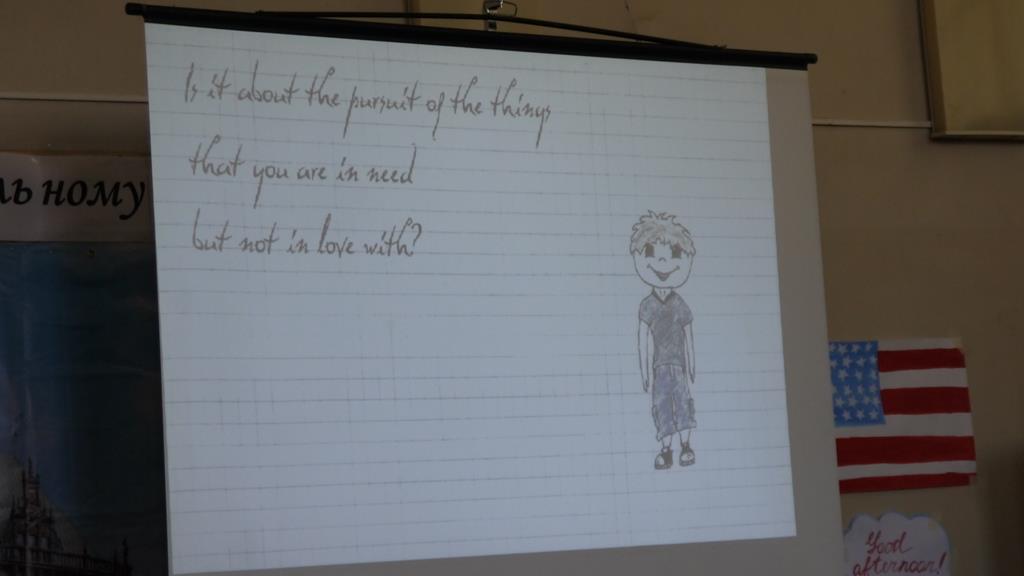 Is it about the pursuit of the things
that you are in need
but not in love with?
ль ному
Good
afternoon!